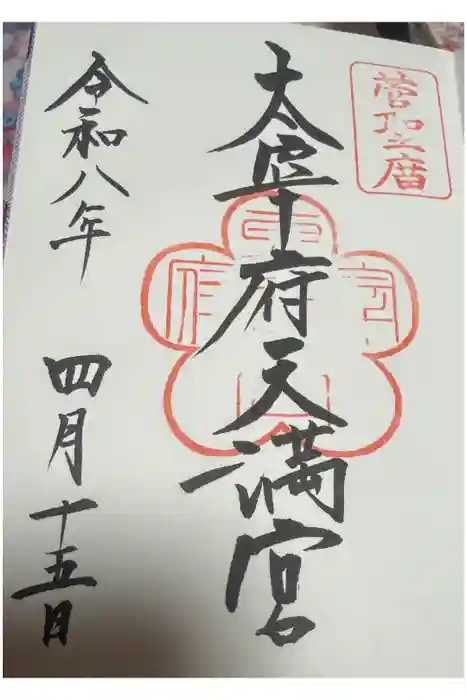 菅聖廟
太宰府天満宮
令和八年 四月十五日